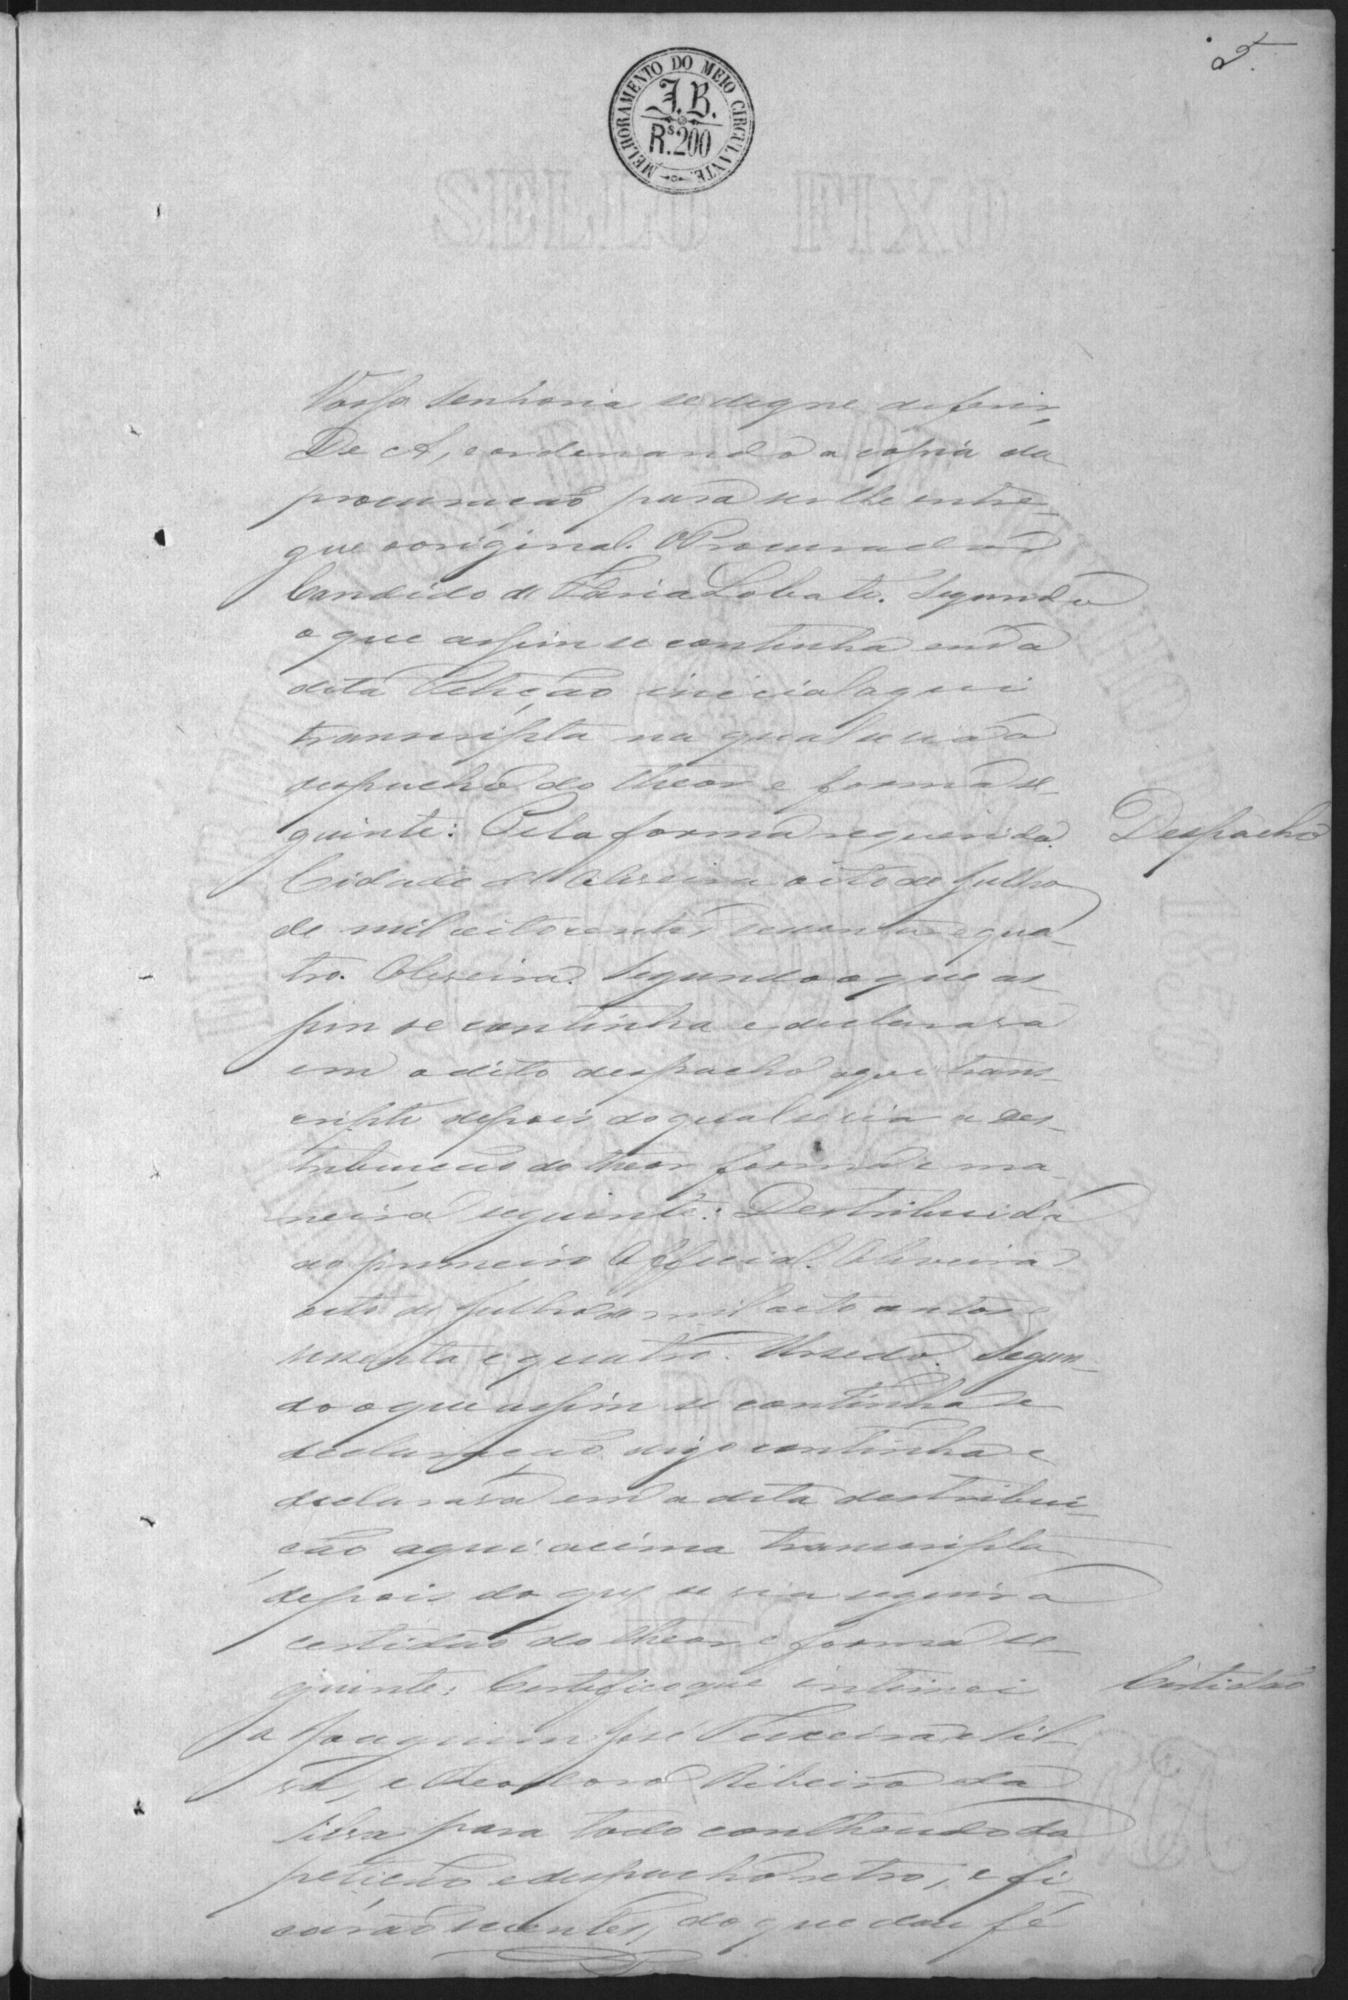 5.
MELHORAMENTO DO MEIO CIRCULANTE.
J.B.
Rs.200
Vossa Senhoria se digne deferir,
De A, e ordenando a copia da
procuração para ser lhe entre-
gue o original. O Procurador
Candido de Faria Lobato. Segundo
o que assim se continha em a
dita Petição inicial aqui
transcripta na qual se via o
despacho do theor e forma se-
guinte: Pela forma requerida. Despacho
Cidade de Oliveira oito de Julho
de mil oitocentos sessenta e qua-
tro. Oliveira. Segundo o que as-
sim se continha e declarava
em o dito despacho aqui trans-
cripto depois do qual se via a des-
tribuição do theor forma e ma-
neira seguinte: Destribuida
ao primeiro Official. Oliveira
oito de Julho de mil oito centos e
sessenta e quatro. Segun-
do o que assim se continha e
declaração digo continha e
declarava em a dita destribui-
ção aqui acima transcripta
depois do que se via seguir a
certidão do theor e forma se-
guinte: Certifico que intimei Certidão
a Joaquim José Teixeira e Sil-
va, e Theodoro Ribeiro da
Silva para todo contheudo da
petição e despacho retro, e fi-
carão scientes, do que dou fé